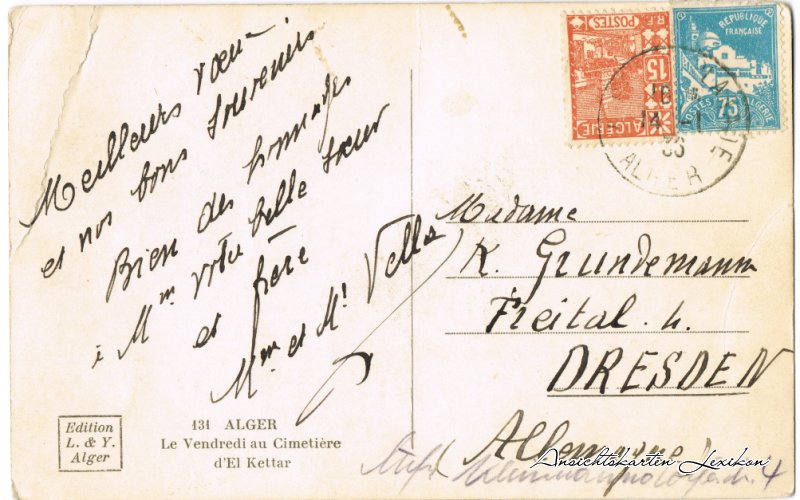 Meilleurs vœux
et nos bons souvenirs
Bien des hommages
à Mme votre belle sœur
et frère
Mme et Mr Vella
R.F. POSTES
15
ALGÉRIE
RÉPUBLIQUE
FRANÇAISE
POSTES 75 ALGÉRIE
14 -1
36
ALGER
Madame
K. Grundemann
Freital. b.
DRESDEN
Allemagne
Edition
L. & Y.
Alger
131 ALGER
Le Vendredi au Cimetière
d'El Kettar
Ansichtskarten Lexikon